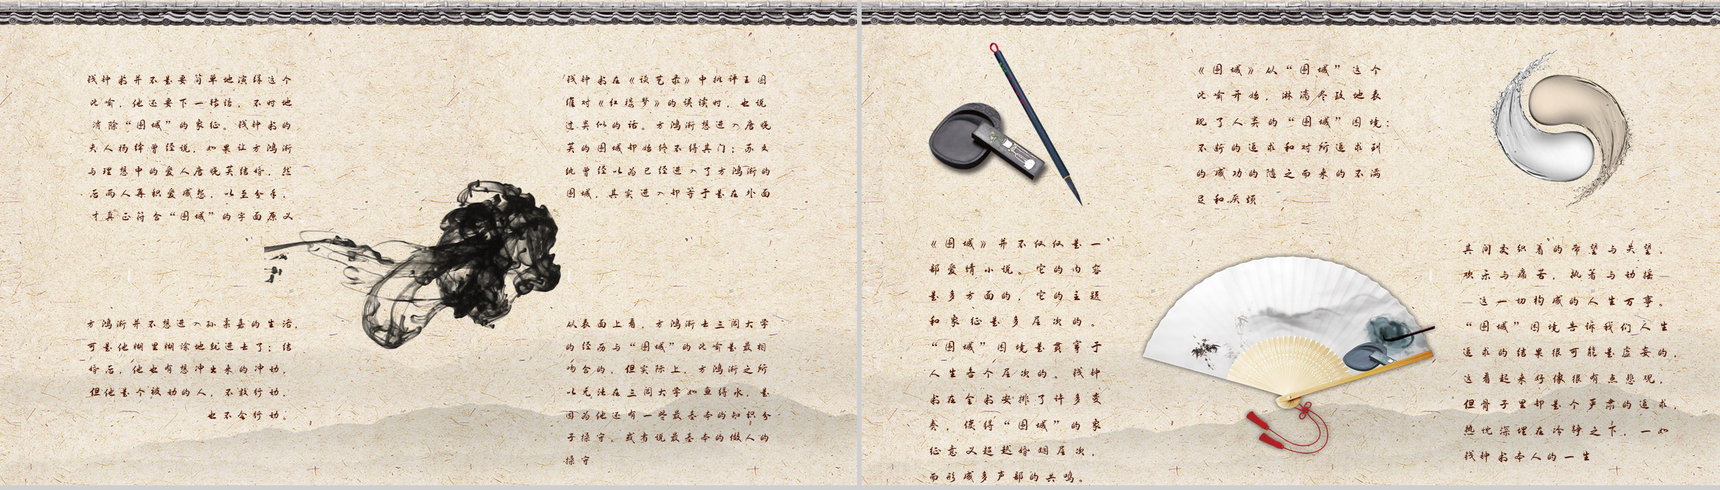 钱钟书并不是要简单地演绎这个
比喻，他还要下一转语，不时地
消除“围城”的象征。钱钟书的
夫人杨绛曾经说，如果让方鸿渐
与理想中的爱人唐晓芙结婚，然
后两人再积爱成怨，以至分手，
才真正符合“围城”的字面原义
钱钟书在《谈艺录》中批评王国
维对《红楼梦》的误读时，也说
过类似的话。方鸿渐想进入唐晓
芙的围城却始终不得其门；苏文
纨曾经以为已经进入了方鸿渐的
围城，其实进入却等于是在外面
方鸿渐并不想进入孙柔嘉的生活，
可是他糊里糊涂地就进去了；结
婚后，他也有想冲出来的冲动，
但他是个被动的人，不敢行动，
也不会行动。
从表面上看，方鸿渐去三闾大学
的经历与“围城”的比喻是最相
吻合的，但实际上，方鸿渐之所
以无法在三闾大学如鱼得水，是
因为他还有一些最基本的知识分
子操守，或者说最基本的做人的
操守
《围城》从“围城”这个
比喻开始，淋漓尽致地表
现了人类的“围城”困境：
不断的追求和对所追求到
的成功的随之而来的不满
足和厌烦
《围城》并不仅仅是一
部爱情小说。它的内容
是多方面的，它的主题
和象征是多层次的。
“围城”困境是贯穿于
人生各个层次的。钱钟
书在全书安排了许多变
奏，使得“围城”的象
征意义超越婚姻层次，
而形成多声部的共鸣。
其间交织着的希望与失望，
欢乐与痛苦，执着与动摇—
—这一切构成的人生万事。
“围城”困境告诉我们人生
追求的结果很可能是虚妄的，
这看起来好像很有点悲观，
但骨子里却是个严肃的追求，
热忱深埋在冷静之下，一如
钱钟书本人的一生